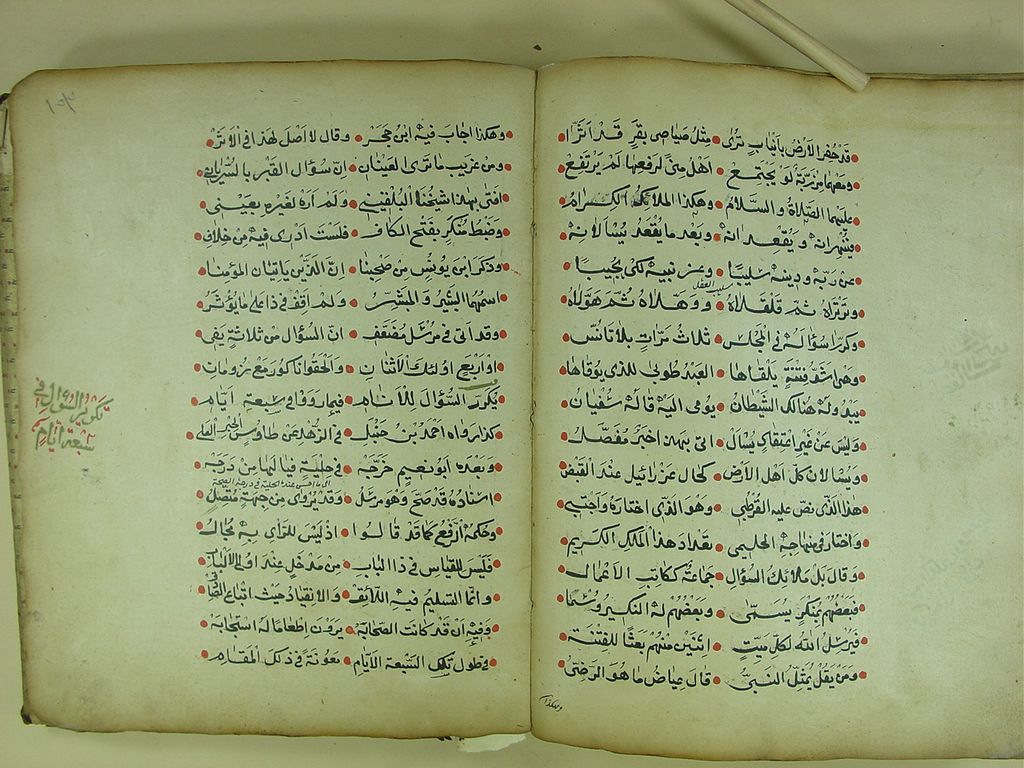 قد حفرا الأرض بأنياب ترى • مثل صياصي بقر قد أثرا
ومعهما مرزبة لو يجتمع • اهل منى لرفعها لم يرتفع
عليهما الصلاة والسلام • وهكذا الملائك الكرام
فينهرانه ويقعدانه • وبعد ما يقعد يسألانه
عن ربه ودينه سليبا • وعن نبيه لكى يجيبا
سليب العقل
وترتراه ثم قلقلاه • ووهلاه ثم هولاه
وكررا سؤاله في المجلس • ثلاث مرات بلا تانس
وهي اشد فتنة يلقاها • العبد طوبى للذي يوقاها
يبدو له هنالك الشيطان • يومى اليه قاله سفيان
وليس عن غير اعتقاد يسأل • اتى بهذا خبر مفصل
ويسألان كل اهل الارض • كحال عزرائيل عند القبض
هذا الذي نص عليه القرطبي • وهو الذي اختاره واجتبي
واختار في منهاجه الحليمي • تعداد هذا الملك الكريم
وقال بل ملائك السؤال • جماعة ككاتب الاعمال
فبعضهم بمنكر يسمى • وبعضهم له النكير وسما
فيرسل الله لكل ميت • اثنين منهم بعثا للفتنة
ومن يقل يمثل النبي • قال عياض ما هو الرضي
وهكذا
١٥٣
وهكذا اجاب فيه ابن حجر • وقال لا اصل لهذا في الاثر
ومن غريب ما ترى العينان • ان سؤال القبر بالسرياني
افتى بهذا شيخنا البلقيني • ولم اره لغيره بعيني
وضبط منكر بفتح الكاف • فلست ادرى فيه من خلاف
وذكر ابن يونس من صحبنا • ان الذين ياتيان المؤمنا
اسمهما البشير والمبشر • ولم اقف في ذا على ما يؤثر
وقد اتى في مرسل مضعف • ان السؤال من ثلاثة يفي
او اربع اولئك الاثنان • والحقوا ناكور مع رومان
يكرر السؤال للانام • فيما رووا في سبعة ايام
تكرير السؤال في
سبعة ايام
كذا رواه احمد بن حنبل • في الزهد عن طاوس الحبر العلي
وبعده ابو نعيم خرجه • في حلية فيا لها من درجه
اسناده قد صح وهو مرسل • وقد يروى من جهة متصل
وحكمه الرفع كما قد قالوا • اذ ليس للرأي به مجال
فليس للقياس في ذا الباب • من مدخل عند اولي الالباب
وانما التسليم فيه اللائق • والانقياد حيث اتباع
وفيه ان قد كانت الصحابة • يرون اطعاما له استجابة
في طول تلك السبعة الايام • معونة في ذلك المقام